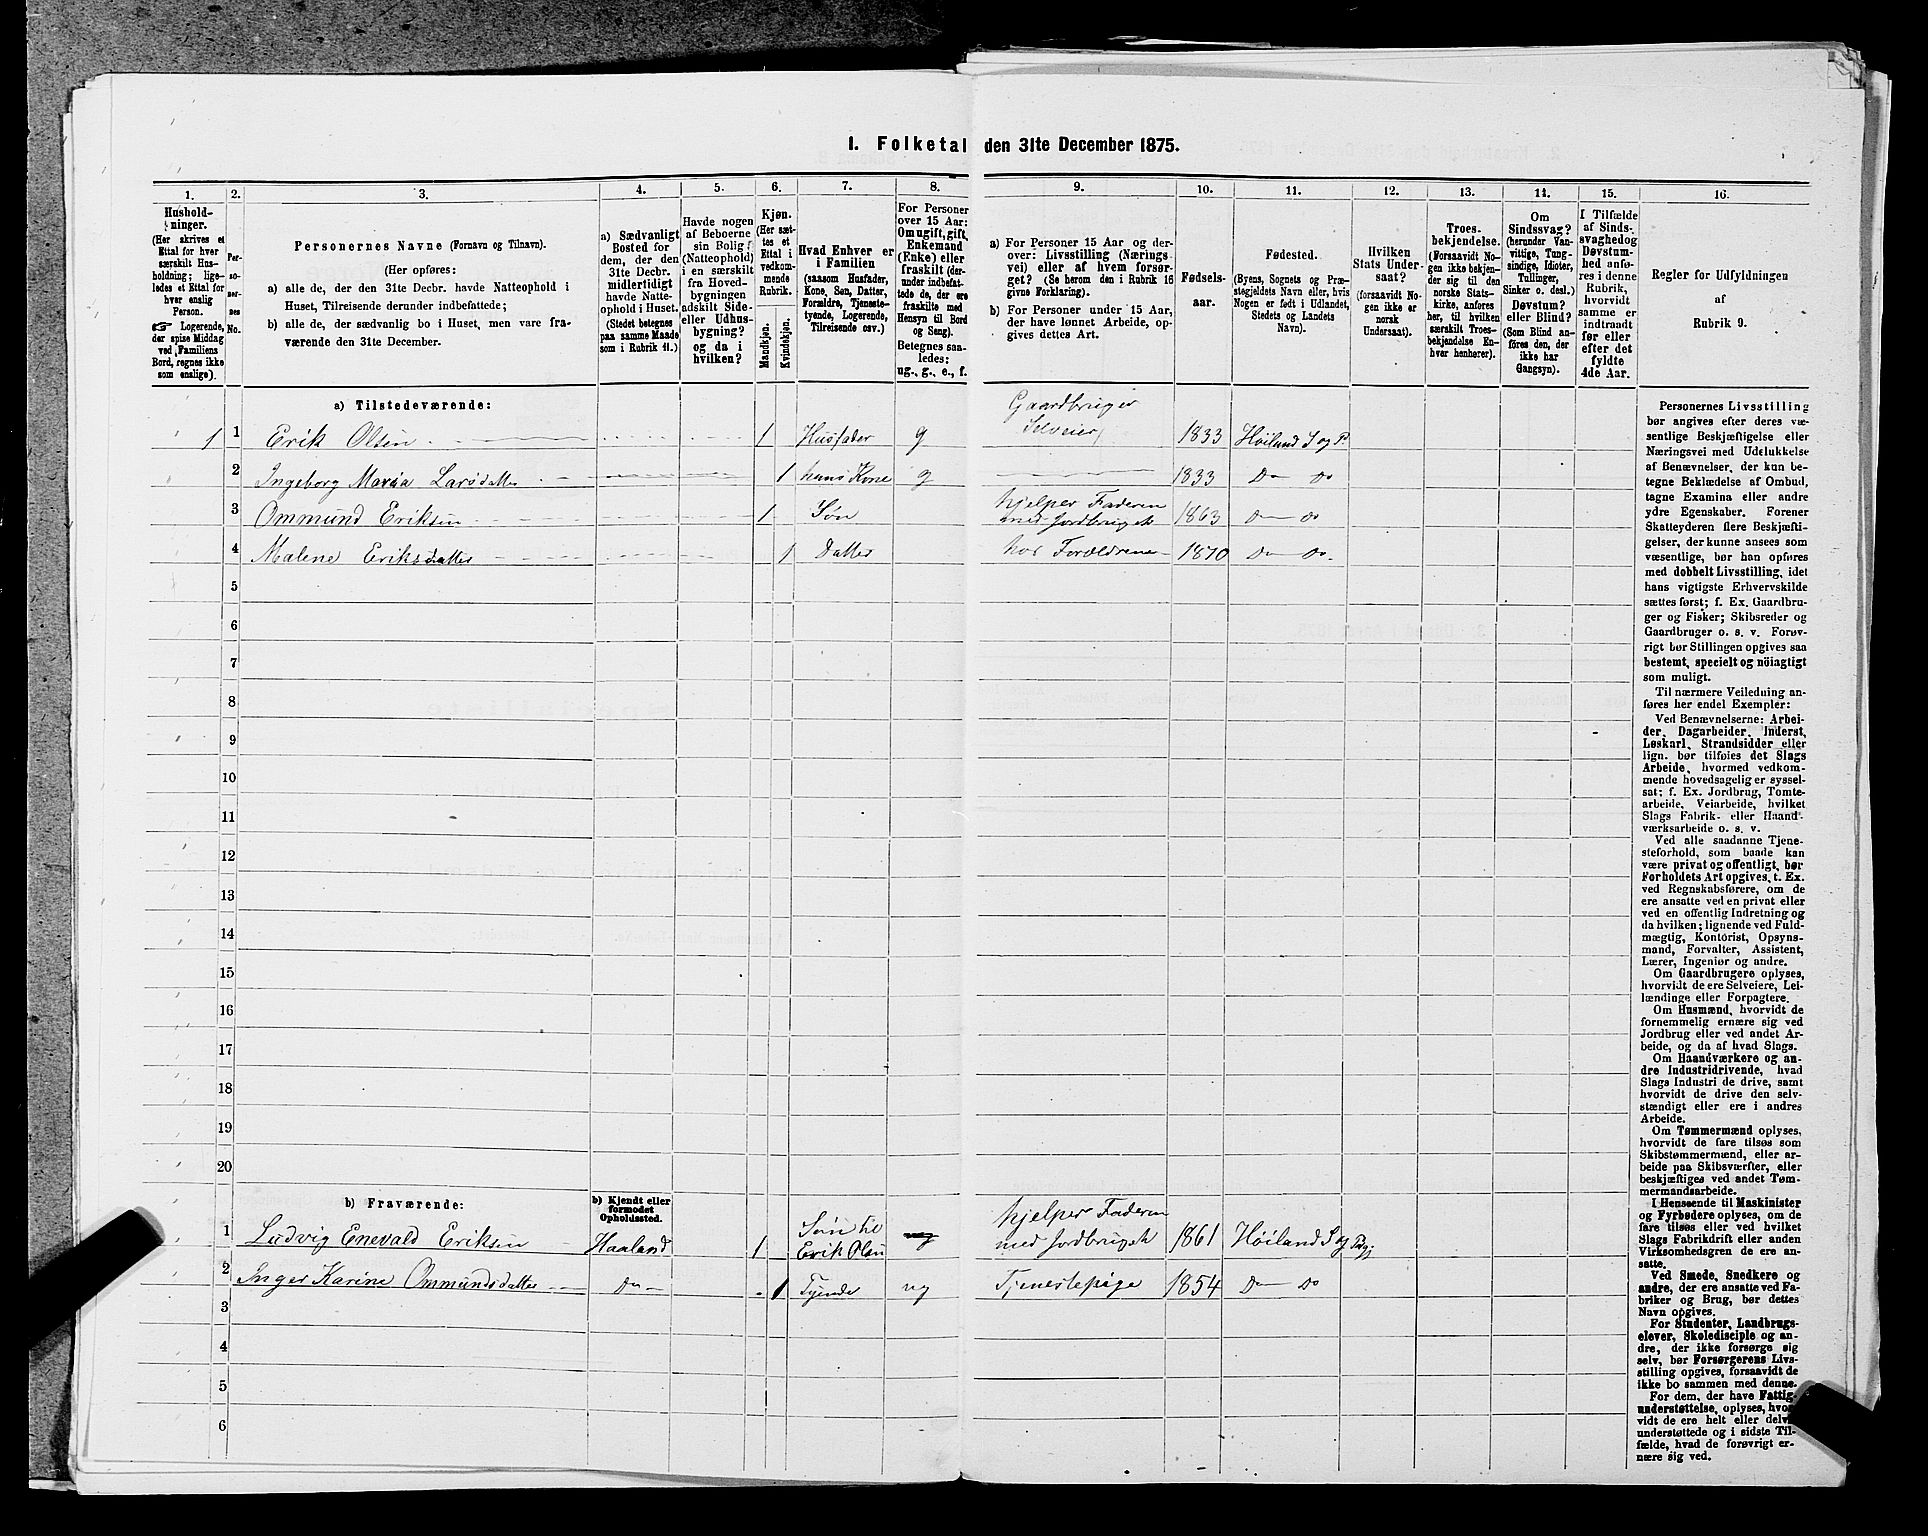 1. Folketal den 31te December 1875.
1.
Hushold-
ninger.
(Her skrives et
Ettal for hver
særskilt Hus-
holdning; lige-
ledes et Ettal for
hver enslig
Person.
☞ Logerende,
der spise Middag
ved Familiens
Bord, regnes ikke
som enslige).
2.
Per-
so-
ner-
nes
No.
3.
Personernes Navne (Fornavn og Tilnavn).
(Her opføres:
a) alle de, der den 31te Decbr. havde Natteophold i
Huset, Tilreisende derunder indbefattede;
b) alle de, der sædvanlig bo i Huset, men vare fra-
værende den 31te December.
4.
a) Sædvanligt
Bosted for
dem, der den
31te Decbr.
midlertidigt
havde Natte-
ophold i Huset.
(Stedet betegnes
paa samme Maade
som i Rubrik 11.)
5.
Havde nogen
af Beboerne
sin Bolig
(Natteophold)
i en særskilt
fra Hoved-
bygningen
adskilt Side-
eller Udhus-
bygning?
og da i
hvilken?
6.
Kjøn.
(Her sæt-
tes et
Ettal i
vedkom-
mende
Rubrik.
Mandkjøn.
Kvindekjøn.
7.
Hvad Enhver er
i Familien
(saasom Husfader,
Kone, Søn, Datter,
Forældre, Tjeneste-
tyende, Logerende,
Tilreisende osv.)
8.
For Personer
over 15 Aar:
Om ugift, gift,
Enkemand
(Enke) eller
fraskilt (der-
under indbefat-
tede de, der ere
fraskilte med
Hensyn til Bord
og Seng).
Betegnes saa-
ledes:
ug., g., e., f.
9.
a) For Personer 15 Aar og der-
over: Livsstilling (Nærings-
vei) eller af hvem forsør-
get? (Se herom den i Rubrik 16
givne Forklaring).
b) For Personer under 15 Aar,
der have lønnet Arbeide, op-
gives dettes Art.
10.
Fødsels-
aar.
11.
Fødested.
(Byens, Sognets og Præ-
stegjeldets Navn eller, hvis
Nogen er født i Udlandet,
Stedets og Landets
Navn).
12.
Hvilken
Stats Under-
saat?
(forsaavidt No-
gen ikke er
norsk
Undersaat).
13.
Troes-
bekjendelse.
(Forsaavidt No-
gen ikke bekjen-
der sig til den
norske Stats-
kirke, anføres
her, til hvilken
særskilt Troes-
bekjendelse En-
hver henhører).
14.
Om
Sindssvag?
(herunder Van-
vittige, Tung-
sindige, Idioter,
Tullinger,
Sinker o. desl.)
Døvstum?
eller Blind?
(Som Blind an-
føres den, der
ikke har
Gangsyn).
15.
I Tilfælde
af Sinds-
svaghed og
Døvstum-
hed anfø-
res i denne
Rubrik,
hvorvidt
samme er
indtraadt
før eller
efter det
fyldte
4de Aar.
16.
Regler for Udfyldningen
af
Rubrik 9.
a) Tilstedeværende:
1 1 Erik Olsen 1 Husfader g Gaardbruger
Selveier 1833 Høiland S og P.
2 Ingeborg Maria Larsdatter 1 hans Kone g 1833 Do Do
3 Ommund Eriksen 1 Søn hjelper Faderen
med Jordbruget 1863 Do Do
4 Malene Eriksdatter 1 Datter hos Forældrene 1870 Do Do
5
6
7
8
9
10
11
12
13
14
15
16
17
18
19
20
b) Fraværende:
b) Kjendt eller
formodet
Opholdssted.
1 Ludvig Enevald Eriksen Haaland 1 Søn til
Erik Olsen ug hjelper Faderen
med Jordbruget 1861 Høiland S og
2 Inger Karine Ommundsdatter Do 1 Tyende ug Tjenestepige 1854 Do Do
3
4
5
6
Personernes Livsstilling
bør angives efter deres væ-
sentlige Beskjæftigelse eller
Næringsvei med Udelukkelse
af Benævnelser, der kun be-
tegne Beklædelse af Ombud,
tagne Examina eller andre
ydre Egenskaber. Forener
Skatteyderen flere Beskjæfti-
gelser, der kunne ansees som
væsentlige, bør han opføres
med dobbelt Livsstilling, idet
hans vigtigste Erhvervskilde
sættes først; f. Ex. Gaardbru-
ger og Fisker; Skibsreder og
Gaardbruger o. s. v. Forøv-
rigt bør Stillingen opgives saa
bestemt, specielt og nöiagtigt
som muligt.
Til nærmere Veiledning an-
føres her endel Exempler:
Ved Benævnelserne: Arbei-
der, Dagarbeider, Inderst,
Løskarl, Strandsidder eller
lign. bør tilføies det Slags
Arbeide, hvormed vedkom-
mende hovedsagelig er syssel-
sat; f. Ex. Jordbrug, Tomte-
arbeide, Veiarbeide, hvilket
Slags Fabrik- eller Haand-
værksarbeide o. s. v.
Ved alle saadanne Tjene-
steforhold, som baade kan
være privat og offentligt, bør
Forholdets Art opgives, t. Ex.
ved Regnskabsførere, om de
ere ansatte ved en privat eller
ved en offentlig Indretning og
da hvilken; lignende ved Fuld-
mægtig, Kontorist, Opsyns-
mand, Forvalter, Assistent,
Lærer, Ingeniør og andre.
Om Gaardbrugere oplyses,
hvorvidt de ere Selveiere, Lei-
lændinge eller Forpagtere.
Om Husmænd, hvorvidt de
fornemmelig ernære sig ved
Jordbrug eller ved andet Ar-
beide, og da af hvad Slags.
Om Haandværkere og an-
dre Industridrivende, hvad
Slags Industri de drive, samt
hvorvidt de drive den selv-
stændigt eller ere i andres
Arbeide.
Om Tømmermænd oplyses,
hvorvidt de fare tilsøs som
Skibstømmermænd, eller ar-
beide paa Skibsværfter, eller
beskjæftiges ved andet Tøm-
mermandsarbeide.
I Henseende til Maskinister
og Fyrbødere oplyses, om de
fare tilsøs eller ved hvilket
Slags Fabrikdrift eller anden
Virksomhedsgren de ere an-
satte.
Ved Smede, Snedkere og
andre, der ere ansatte ved Fa-
briker og Brug, bør dettes
Navn opgives.
For Studenter, Landbrugs-
elever, Skoledisciple og an-
dre, der ikke forsørge sig
selv, bør Forsørgerens Livs-
stilling opgives, forsaavidt de
ikke bo sammen med denne.
For dem, der have Fattig-
understøttelse, oplyses, hvor-
vidt de ere helt eller delvis
understøttede og i sidste Til-
fælde, hvad de forøvrigt er-
nære sig ved.